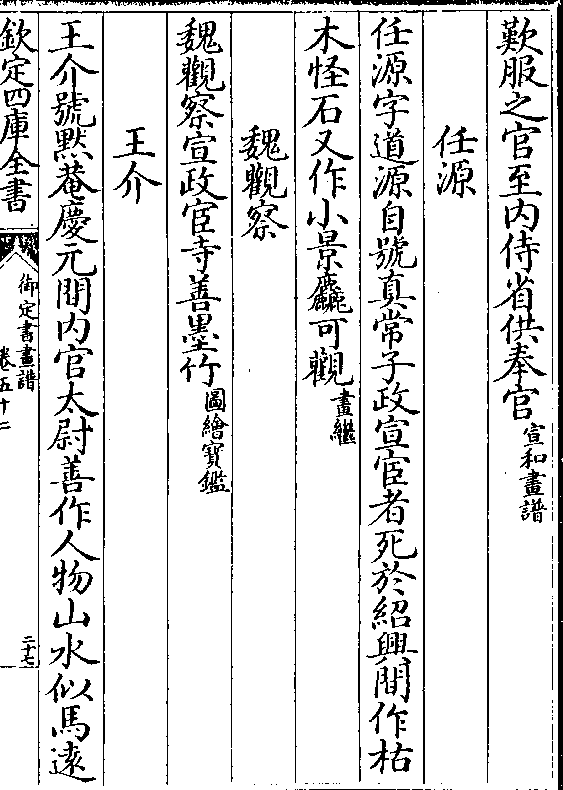 歎服之官至内侍省供奉官宣和畫譜
任源
任源字道源自號真常子政宣宦者死於紹興間作枯
木怪石又作小景麤可觀畫繼
魏觀察
魏觀察宣政宦寺善墨竹圖繪寶鑑
王介
王介號黙菴慶元間内官太尉善作人物山水似馬逺
欽定四庫全書
御定書畫譜
卷五十二
二十七